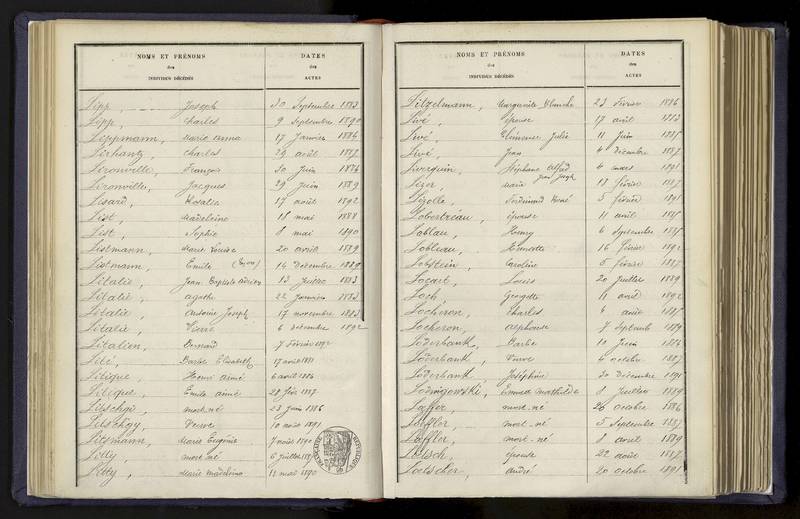 NOMS ET PRÉNOMS
des
INDIVIDUS DÉCÉDÉS
DATES
des
ACTES
Lipp, Joseph 30 Septembre 1883
Lipp, Charles 9 Septembre 1890
Lippmann, Marie Anna 17 Janvier 1886
Lirhantz, Charles 29 août 1887
Lironville, François 30 Juin 1876
Lironville, Jacques 29 Juin 1889
Lisard, Rosalie 17 août 1892
List, Madeleine 18 mai 1888
List, Sophie 8 mai 1890
Listmann, Marie Louise 20 avril 1889
Listmann, Emile 14 Décembre 1889
Litalie, Jean Baptiste 13 Juillet 1883
Litalie, Agathe 22 Janvier 1883
Litalie, Antoine Joseph 17 novembre 1883
Litalie, Pierre 6 Décembre 1892
Litalien, Bernard 7 Février 1892
Lité, Barbe Elisabeth 17 avril 1881
Litique, Henri aimé 6 avril 1886
Litique, Emile aimé 28 1887
Litschgi, mort-né 23 Juin 1886
Litschgy, Veuve 10 août 1891
Litzmann, Marie Eugénie 7 août 1890
mort né 6 Juillet
Marie Madeleine 12 mai 1890
RÉPUBLIQUE FRANÇAISE
NOMS ET PRÉNOMS
des
INDIVIDUS DÉCÉDÉS
DATES
des
ACTES
Litzelmann, Marguerite Blanche 23 Février 1886
Livé, épouse 17 avril 1883
Livé, Clémence Julie 11 Juin 1885
Livé, Jean 4 Décembre 1887
Stéphane Alfred 4 mars 1891
Lizer, Marie 18 février 1887
Lizolle, Ferdinand René 5 février 1891
Lobertreau, épouse 11 avril
Loblau, Henry 6 Septembre
Lobleau, Henriette 16 février 1892
Lobstein, Caroline 5 février 1887
Locart, Louis 20 Juillet 1889
Loch, Georgette 11 avril 1892
Locheron, Charles 4 août 1887
Locheron, Alphonse 7 Septemb 1889
Löderbank, Barbe 10 Juin 1886
Löderbank, Veuve 4 octobre 1887
Löderbank, Joséphine 30 Décembre 1891
Lodwigowski, Ernest Mathilde 8 Juillet 1889
Loeffer, mort-né 26 octobre 1886
Löffler, mort-né 5 Septembre 1887
Löffler, mort-né 8 avril 1889
Lölsch, épouse 22 août 1887
Loelscher, André 20 octobre 1891